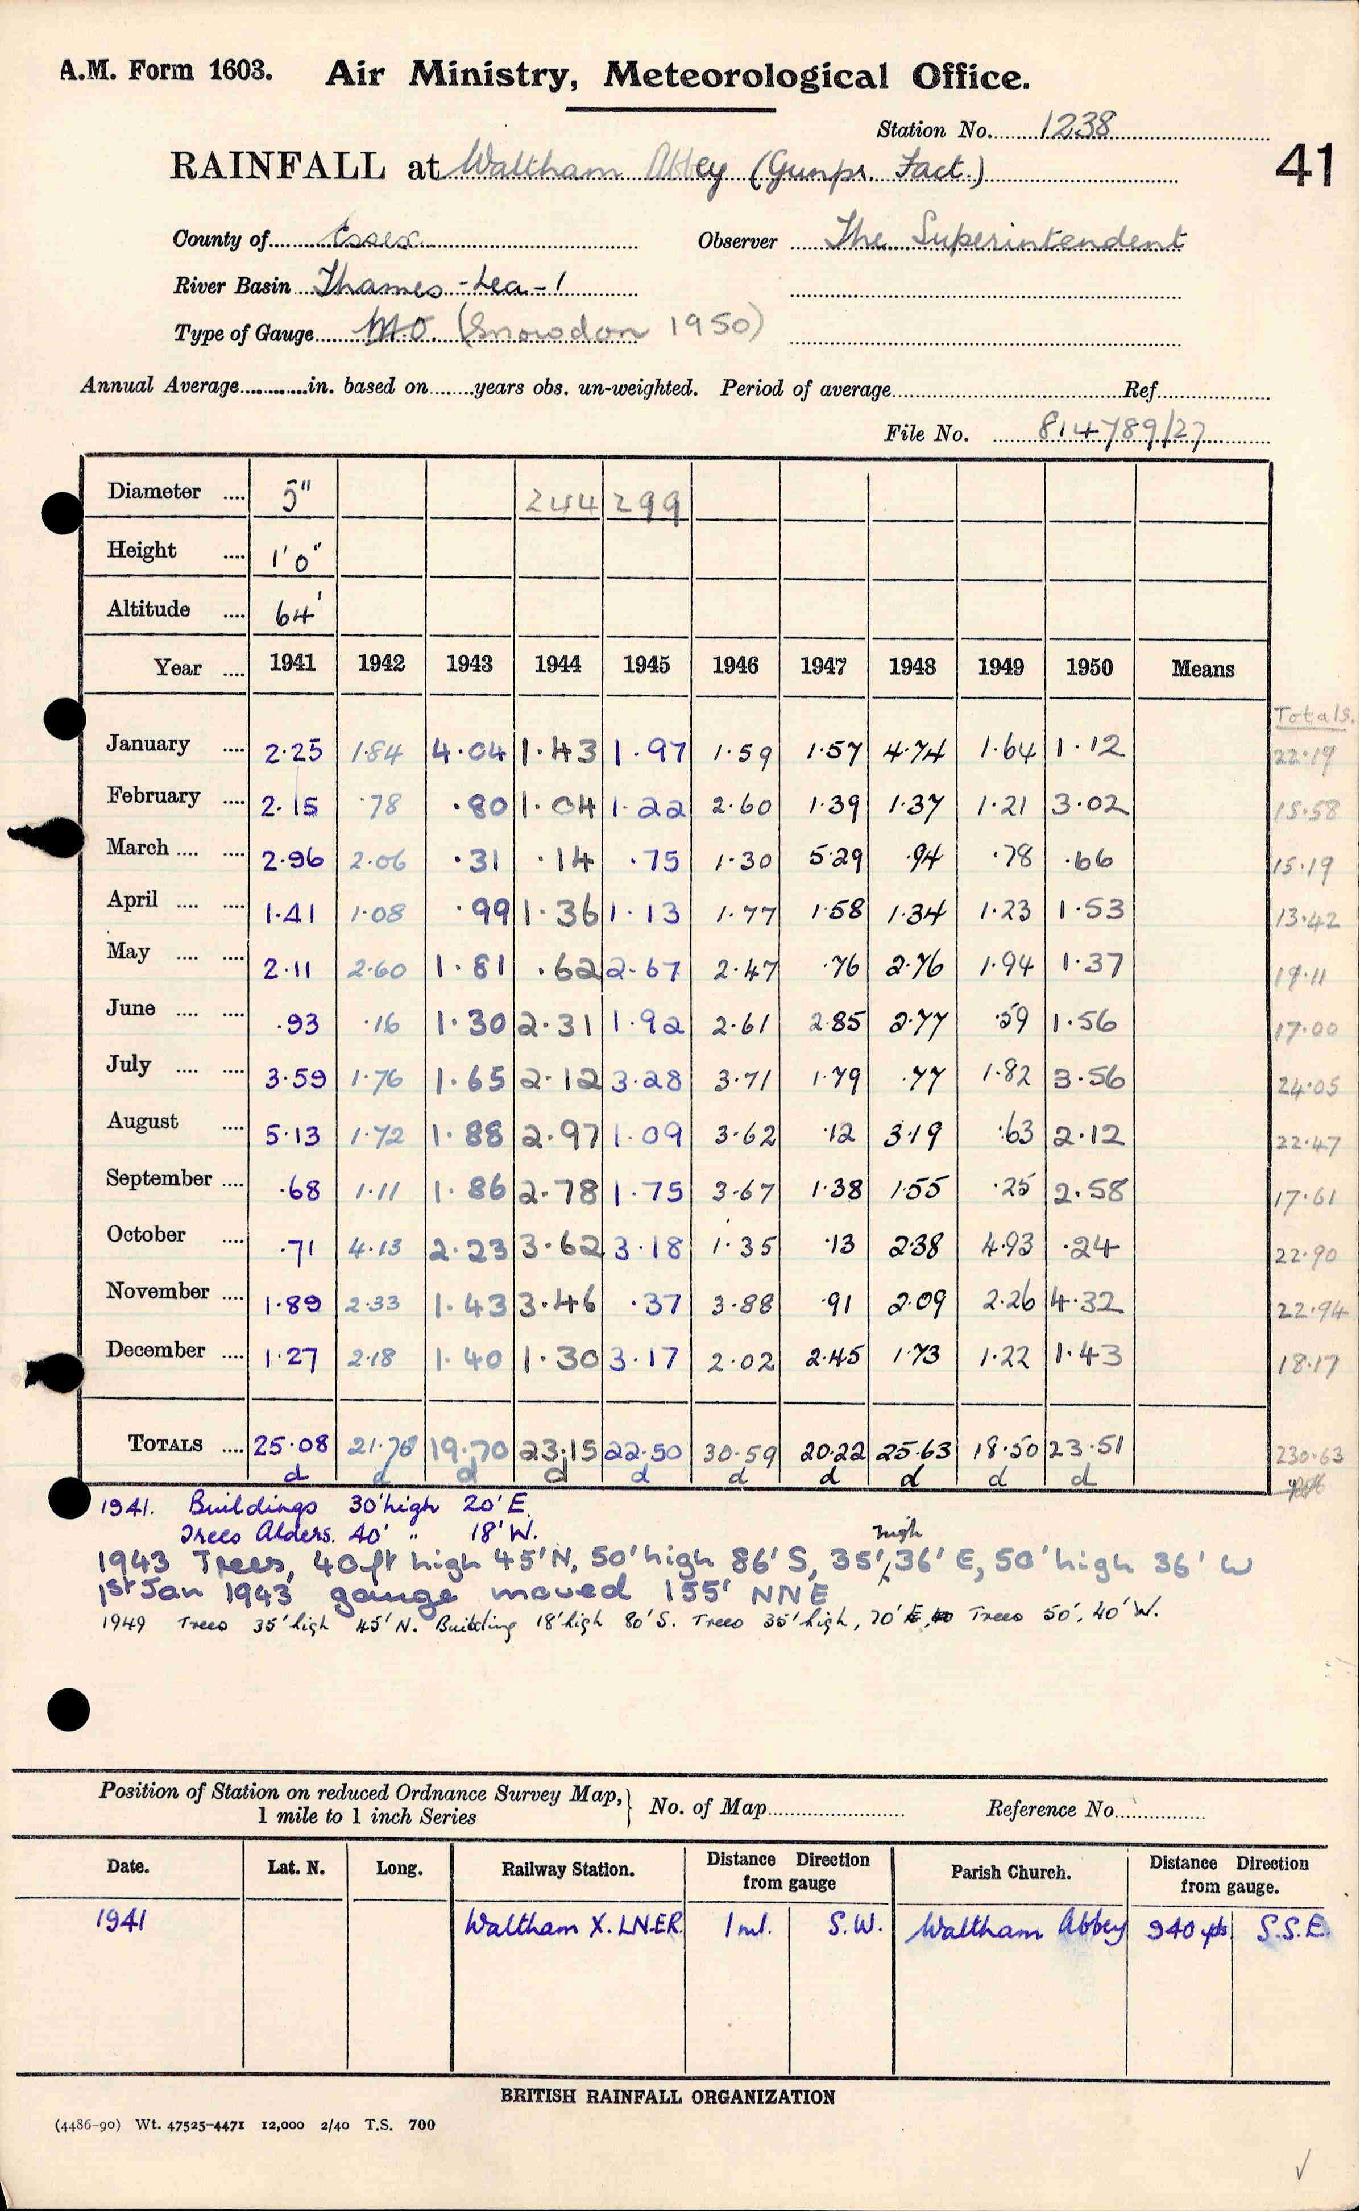 A.M. Form 1603. Air Ministry, Meteorological Office.
Station No. 1238
RAINFALL at Waltham Abbey (Gunpr. Fact.) 41
County of Essex Observer The Superintendent
River Basin Thames - Lea - 1
Type of Gauge M.O. (Snowdon 1950)
Annual Average in. based on years obs. un-weighted. Period of average Ref
File No. 814789/27
Diameter 5" 244 299
Height 1'0"
Altitude 64'
Year 1941 1942 1943 1944 1945 1946 1947 1948 1949 1950 Means
Totals.
January 2.25 1.84 4.04 1.43 1.97 1.59 1.57 4.74 1.64 1.12 22.19
February 2.15 .78 .80 1.04 1.22 2.60 1.39 1.37 1.21 3.02 15.58
March 2.96 2.06 .31 .14 .75 1.30 5.29 .94 .78 .66 15.19
April 1.41 1.08 .99 1.36 1.13 1.77 1.58 1.34 1.23 1.53 13.42
May 2.11 2.60 1.81 .62 2.67 2.47 .76 2.76 1.94 1.37 19.11
June .93 .16 1.30 2.31 1.92 2.61 2.85 2.77 .59 1.56 17.00
July 3.59 1.76 1.65 2.12 3.28 3.71 1.79 .77 1.82 3.56 24.05
August 5.13 1.72 1.88 2.97 1.09 3.62 .12 3.19 .63 2.12 22.47
September .68 1.11 1.86 2.78 1.75 3.67 1.38 1.55 .25 2.58 17.61
October .71 4.13 2.23 3.62 3.18 1.35 .13 2.38 4.93 .24 22.90
November 1.89 2.33 1.43 3.46 .37 3.88 .91 2.09 2.26 4.32 22.94
December 1.27 2.18 1.40 1.30 3.17 2.02 2.45 1.73 1.22 1.43 18.17
TOTALS 25.08 21.75 19.70 23.15 22.50 30.59 20.22 25.63 18.50 23.51 230.63
d d d d d d d d d d
1941. Buildings 30' high 20' E.
Trees Alders. 40' " 18' W.
1943 Trees, 40ft high 45' N, 50' high 86' S, 35' high 36' E, 50' high 36' W
1st Jan 1943 gauge moved 155' NNE
1949 Trees 35' high 45' N. Building 18' high 80' S. Trees 35' high, 70' E, Trees 50', 40' W.
Position of Station on reduced Ordnance Survey Map, 1 mile to 1 inch Series } No. of Map Reference No.
Date. Lat. N. Long. Railway Station. Distance from gauge Direction Parish Church. Distance from gauge. Direction
1941 Waltham X. L.N.E.R. 1 ml. S.W. Waltham Abbey 940 yds S.S.E.
BRITISH RAINFALL ORGANIZATION
(4486-90) Wt. 47525-4471 12,000 2/40 T.S. 700